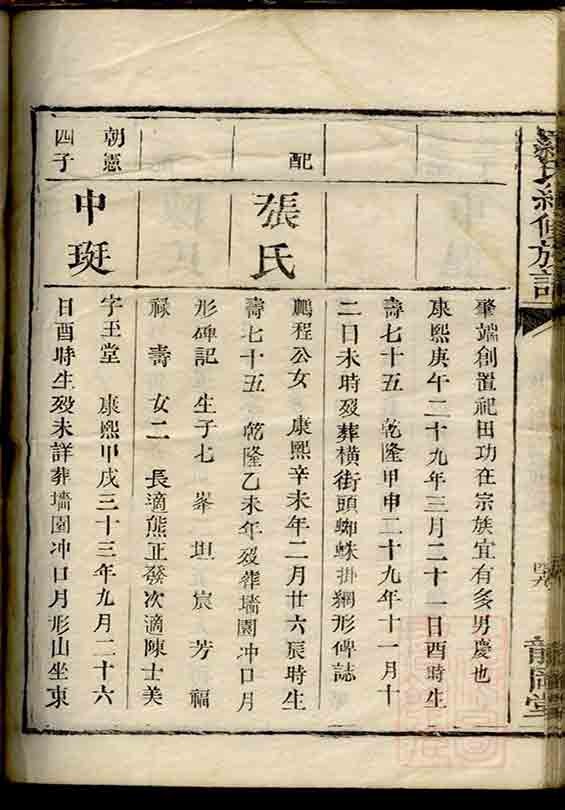 羅氏續修族譜
龍岡堂
肇端創置祀田功在宗族宜有多男慶也
康熙庚午二十九年三月二十一日酉時生
壽七十五 乾隆甲申二十九年十一月十
二日未時歿葬橫街頭蜘蛛掛網形碑誌
配
張氏
鵬程公女 康熙辛未年二月廿六辰時生
壽七十五 乾隆乙未年歿葬墻園冲口月
形碑記 生子七 峯 坦 宸 芳 福
祿 壽 女二 長適熊正發次適陳士美
朝憲
四子
申珽
字玉堂 康熙甲戌三十三年九月二十六
日酉時生歿未詳葬墻園冲口月形山坐東